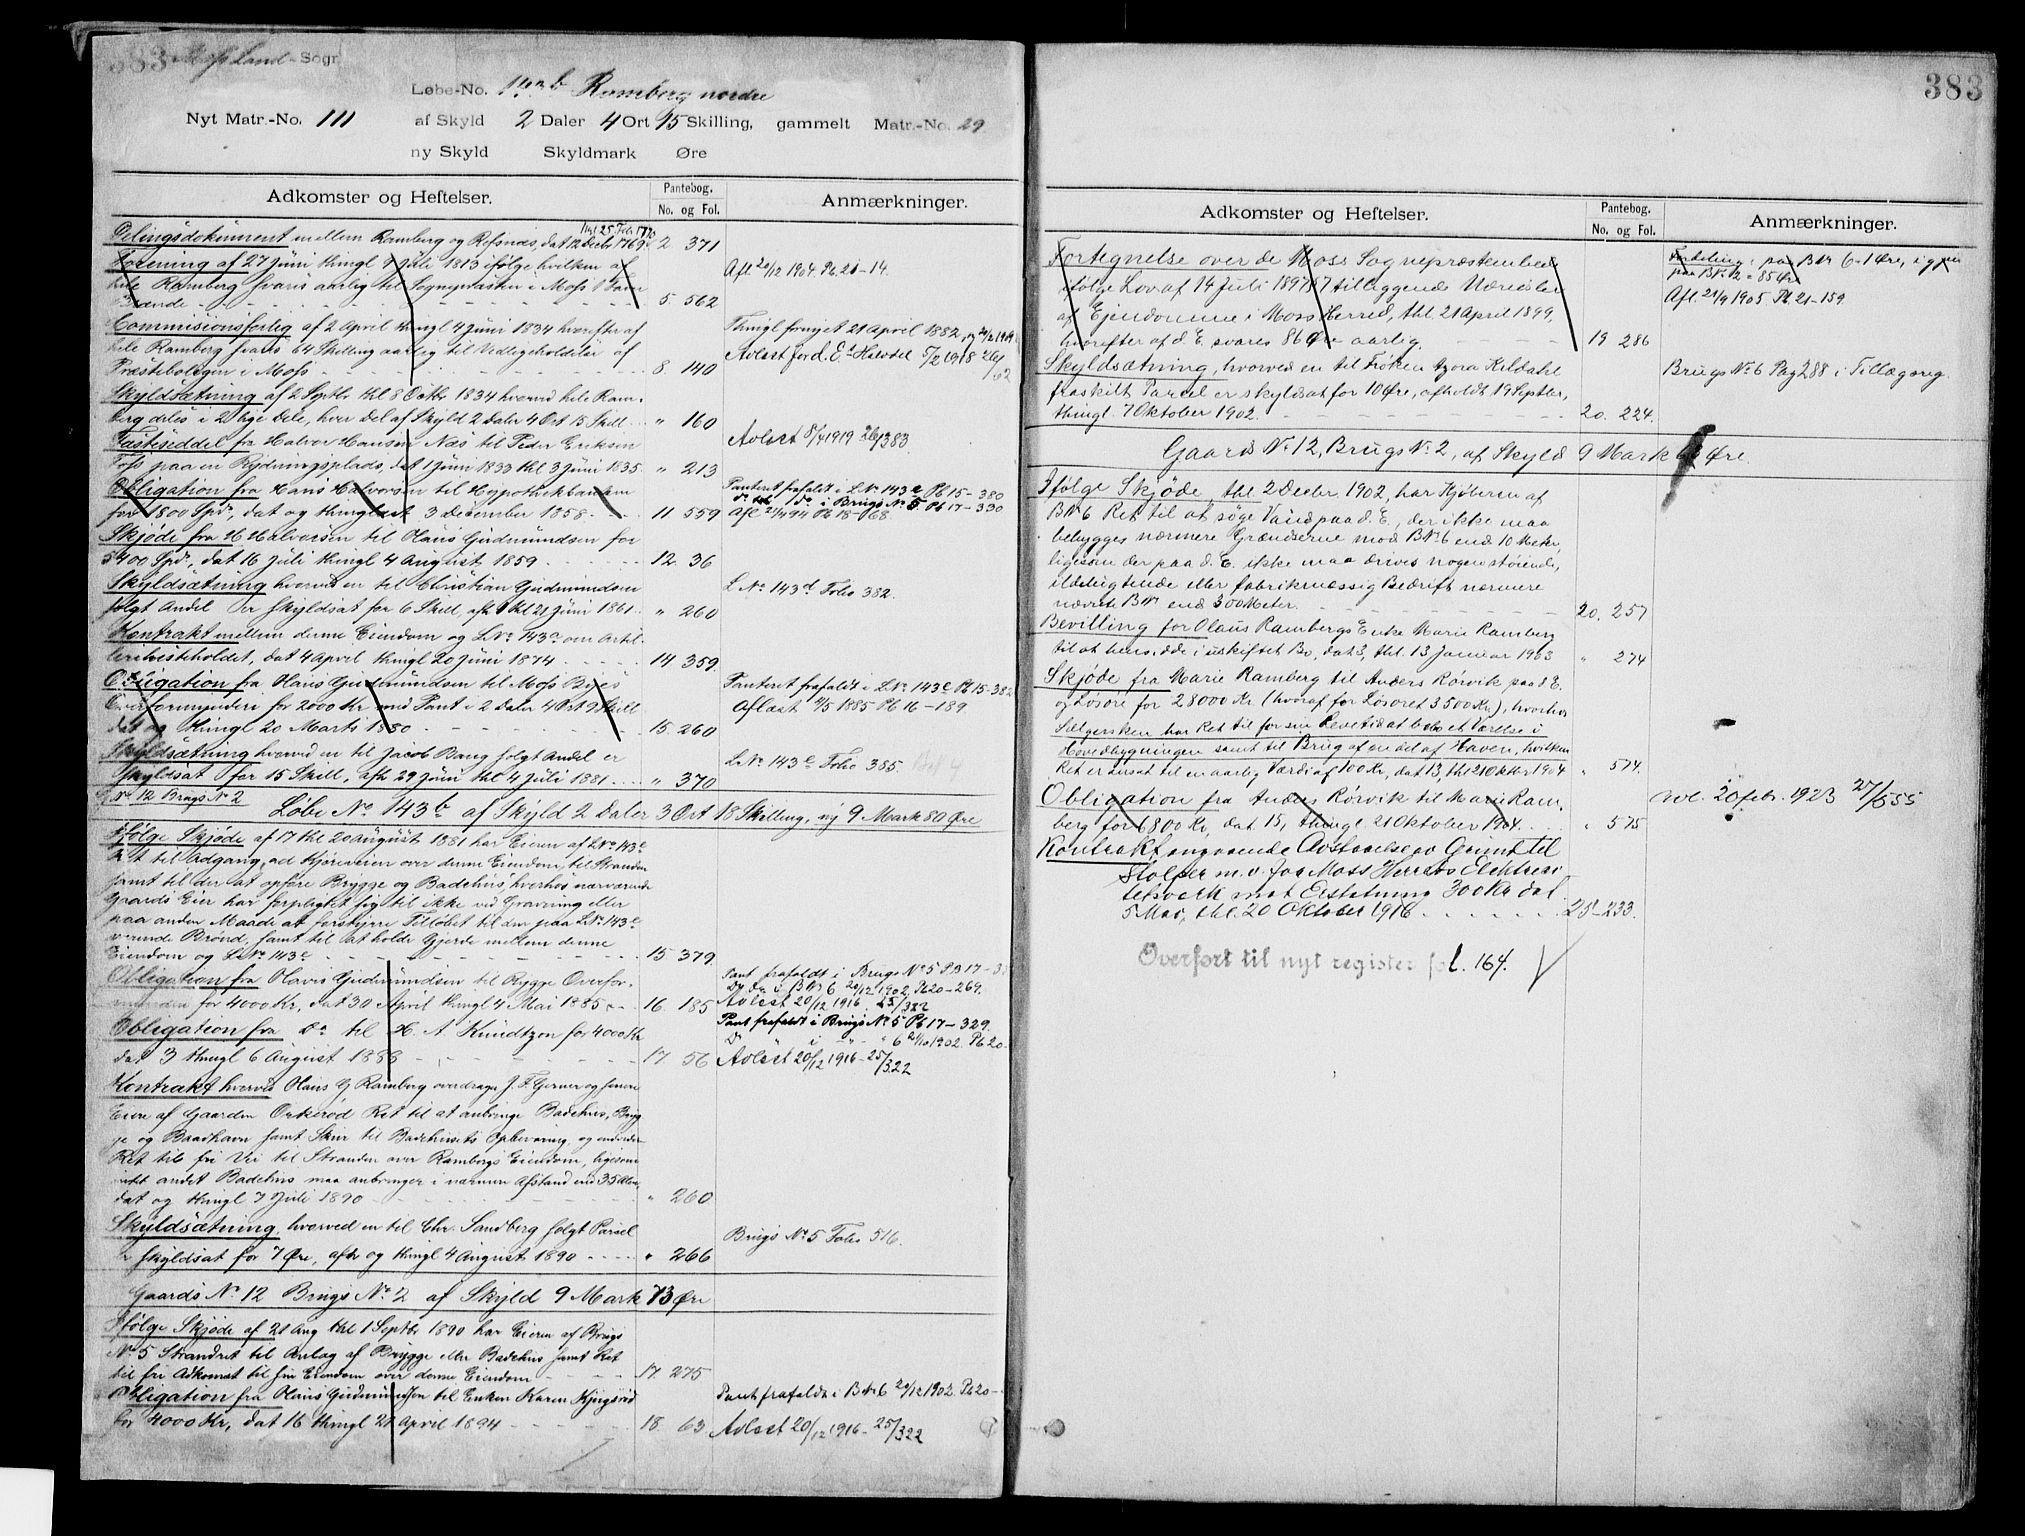 383 Moss Land-Sogn
Løbe-No. 143b Ramberg nordre
Nyt Matr.-No. 111 af Skyld 2 Daler 4 Ort 15 Skilling, gammelt Matr.-No. 29
ny Skyld Skyldmark Øre
Adkomster og Heftelser. Pantebog. No. og Fol. Anmærkninger.
thgl 25 Feb 1770
Delingsdokument mellem Ramberg og Refsnæs, dat 12 Decbr 1769 2 371
Forening af 27 Juni thingl 9 Juli 1813 ifølge hvilken af
hele Ramberg svares aarlig til Sognepræsten i Moss 1 Favn
Brænde 5 562
Afl 20/12 1904 Pb. 21-14.
Commisionsforlig af 2 April thingl 4 Juni 1834 hvorefter af
hele Ramberg svares 64 Skilling aarlig til Vedligeholdelse af
Præsteboligen i Moss 8 140
Thingl fornyet 21 April 1882, og 24/2 1919
Avlest for d. E. Halvdel 5/2 1918 26/62
Skyldsætning af 2 Septbr thl 8 Octbr 1834 hvorved hele Ram-
berg deles i 2 lige Dele, hver Del af Skyld 2 Daler 4 Ort 15 Skill " 160
Fæsteseddel fra Halvor Hansen Næs til Peder Eriksen
Foss paa en Rydningsplads, dat 1 Juni 1833 thl 3 Juni 1835 " 213
Avlest 8/4 1919 26/383
Obligation fra Hans Halvorsen til Hypothekbanken
for 1800 Spd, dat og thinglæst 3 December 1858 11 559
Panteret frafaldt i L.No 143e Pb 15-380
do til do i Brugs No 5 Pb 17-330
Afl 21/4 94 Pb 18-68.
Skjøde fra H Halvorsen til Hans Gudmundsen for
5400 Spd, dat 16 Juli thingl 4 August 1859 12 36
Skyldsætning hvorved en til Christian Gudmundsen
solgt Andel er skyldsat for 6 Skill, afh & thl 21 Juni 1861 " 260
L No 143d Folio 382.
Kontrakt mellem denne Eiendom og L.No 143a om Artil-
leritvisteholdet, dat 4 April thingl 20 Juni 1874 14 359
Obligation fra Hans Gudmundsen til Moss Byes
Overformynderi for 2000 Kr mod Pant i 2 Daler 4 Ort 9 Skill
dat og thingl 20 Marts 1880 15 260
Panteret frafaldt i L.No 143e Pb 15-382
Aflæst 9/5 1885 Pb 16-189
Skyldsætning hvorved en til Jacob Bang solgt Andel er
Skyldsat for 15 Skill, afh 29 Juni thl 4 Juli 1881 " 370
L.No 143e Folio 385.
G.No 12 Brugs No 2
Løbe No 143b af Skyld 2 Daler 3 Ort 18 Skilling, ny 9 Mark 80 Øre
Ifølge Skjøde af 17 thl 20 August 1881 har Eieren af L.No 143e
Ret til Adgang ad Kjøreveien over denne Eiendom til Stranden
samt til der at opføre Brygge og Badehus, hverhos nærværende
Gaards Eier har forpligtet sig til ikke ved Gravning eller
paa anden Maade at forstyrre Tilløbet til den paa L.No 143e
værende Brønd, samt til at holde Gjerde mellem denne
Eiendom og L.No 143e 15 379
Obligation fra Hans Gudmundsen til Rygge Overfor-
mynderi for 4000 Kr, dat 30 April thingl 4 Mai 1885 16. 185
Pant frafaldt i Brugs No 5 Pb 17-3
Do do i B.No 6 20/12 1902, Pb 20-269.
Avlest 20/12 1916 25/322
Obligation fra Do til H. A. Knudtzon for 4000 Kr
dat 3 thingl 6 August 1888 17 56
Pant frafaldt i Brugs No 5 Pb 17-329.
Do i " " 6 2/10 1902. Pb 20-
Avlest 20/12 1916-25/322
Kontrakt hvorved Hans G. Ramberg overdrager J. F. Gerner og senere
Eiere af Gaarden Orkerød Ret til at anbringe Badehus, Bryg-
ge og Baadhavn samt Skur til Badehusets Opbevaring, og endvidere
Ret til fri Vei til Stranden over Rambergs Eiendom, ligesom
intet andet Badehus maa anbringes i nærmere Afstand end 35 Alen,
dat og thingl 7 Juli 1890 " 260
Skyldsætning, hvorved en til Chr. Sandberg solgt Parsel
er skyldsat for 7 Øre, afh og thingl 4 August 1890 " 266
Brugs No 5 Folio 516.
Gaards No 12 Brugs No 2 af Skyld 9 Mark 73 Øre
Ifølge Skjøde af 21 Aug thl 1 Septbr 1890 har Eieren af Brugs
No 5 Strandret til Anlæg af Brygge eller Badehus samt Ret
til fri Adkomst til sin Eiendom over denne Eiendom 17. 275
Obligation fra Hans Gudmundsen til Enken Karen Kjngsrød
for 4000 Kr, dat 16 thingl 21 April 1894 18. 63
Pant frafaldt i B.No 6 20/12 1902. Pb 20-
Avlest 20/12 1916-25/322
383
Adkomster og Heftelser. Pantebog. No. og Fol. Anmærkninger.
Fortegnelse over de Moss Sognepræstembede
ifølge Lov af 14 Juli 1897 § 7 tilliggende Udreisler
af Eiendomme i Moss Herred, thl. 21 April 1899,
hvorefter af d. E. svares 86 Øre aarlig. 19 286
Fordeling: paa BN 6 - 1 Øre, igjen
paa B.No 2 = 85 Øre
Afl. 21/9 1905 Pb. 21-159.
Skyldsætning, hvorved en til Frøken Thora Kildahl
fraskilt Parcel er skyldsat for 10 Øre, afholdt 19 Septbr,
thingl. 7 Oktober 1902. 20. 224.
Brugs No 6 Pag 288 i Tillægsreg.
Gaards No 12, Brugs No 2, af Skyld 9 Mark 63 Øre.
Ifølge Skjøde, thl 2 Decbr. 1902, har Kjøberen af
B.No 6 Ret til at søge Vand paa d. E., der ikke maa
bebygges nærmere Grændserne mod B.No 6 end 10 Meter,
ligesom der paa d. E. ikke maa drives nogen støiende,
ildelugtende eller fabrikmæssig Bedrift nærmere
nævnte B.No end 300 Meter. 20. 257
Bevilling for Olaus Rambergs Enke Marie Ramberg
til at hensidde i uskiftet Bo, dat. 3, thl. 13 Januar 1903 " 274
Skjøde fra Marie Ramberg til Anders Rörvik paa d. E.
og Løsøre for 28000 Kr (hvoraf for Løsøret 3500 Kr), hvorhos
Sælgersken har Ret til for sin Levetid at bebo et Værelse i
Hovedbygningen samt til Brug af en del af Haven, hvilken
Ret er ansat til en aarlig Værdi af 100 Kr, dat 13, thl 21 Oktbr 1904 " 574.
Obligation fra Anders Rörvik til Marie Ram-
berg for 6800 Kr, dat. 15, thingl 21 Oktober 1904. " 575
Avl. 20 feb. 1923 27/555
Kontrakt angaaende Avstaaelse av Grund til
Stolper m.v. for Moss Herreds Elektrici-
tetsverk mot Erstatning 300 Kr dat.
5 Mai, thl. 20 Oktober 1916 25-233.
Overført til nyt register fol. 164.